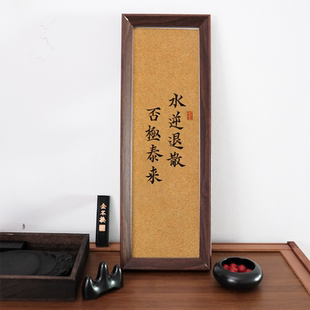 水逆退散
否極泰来
金不換